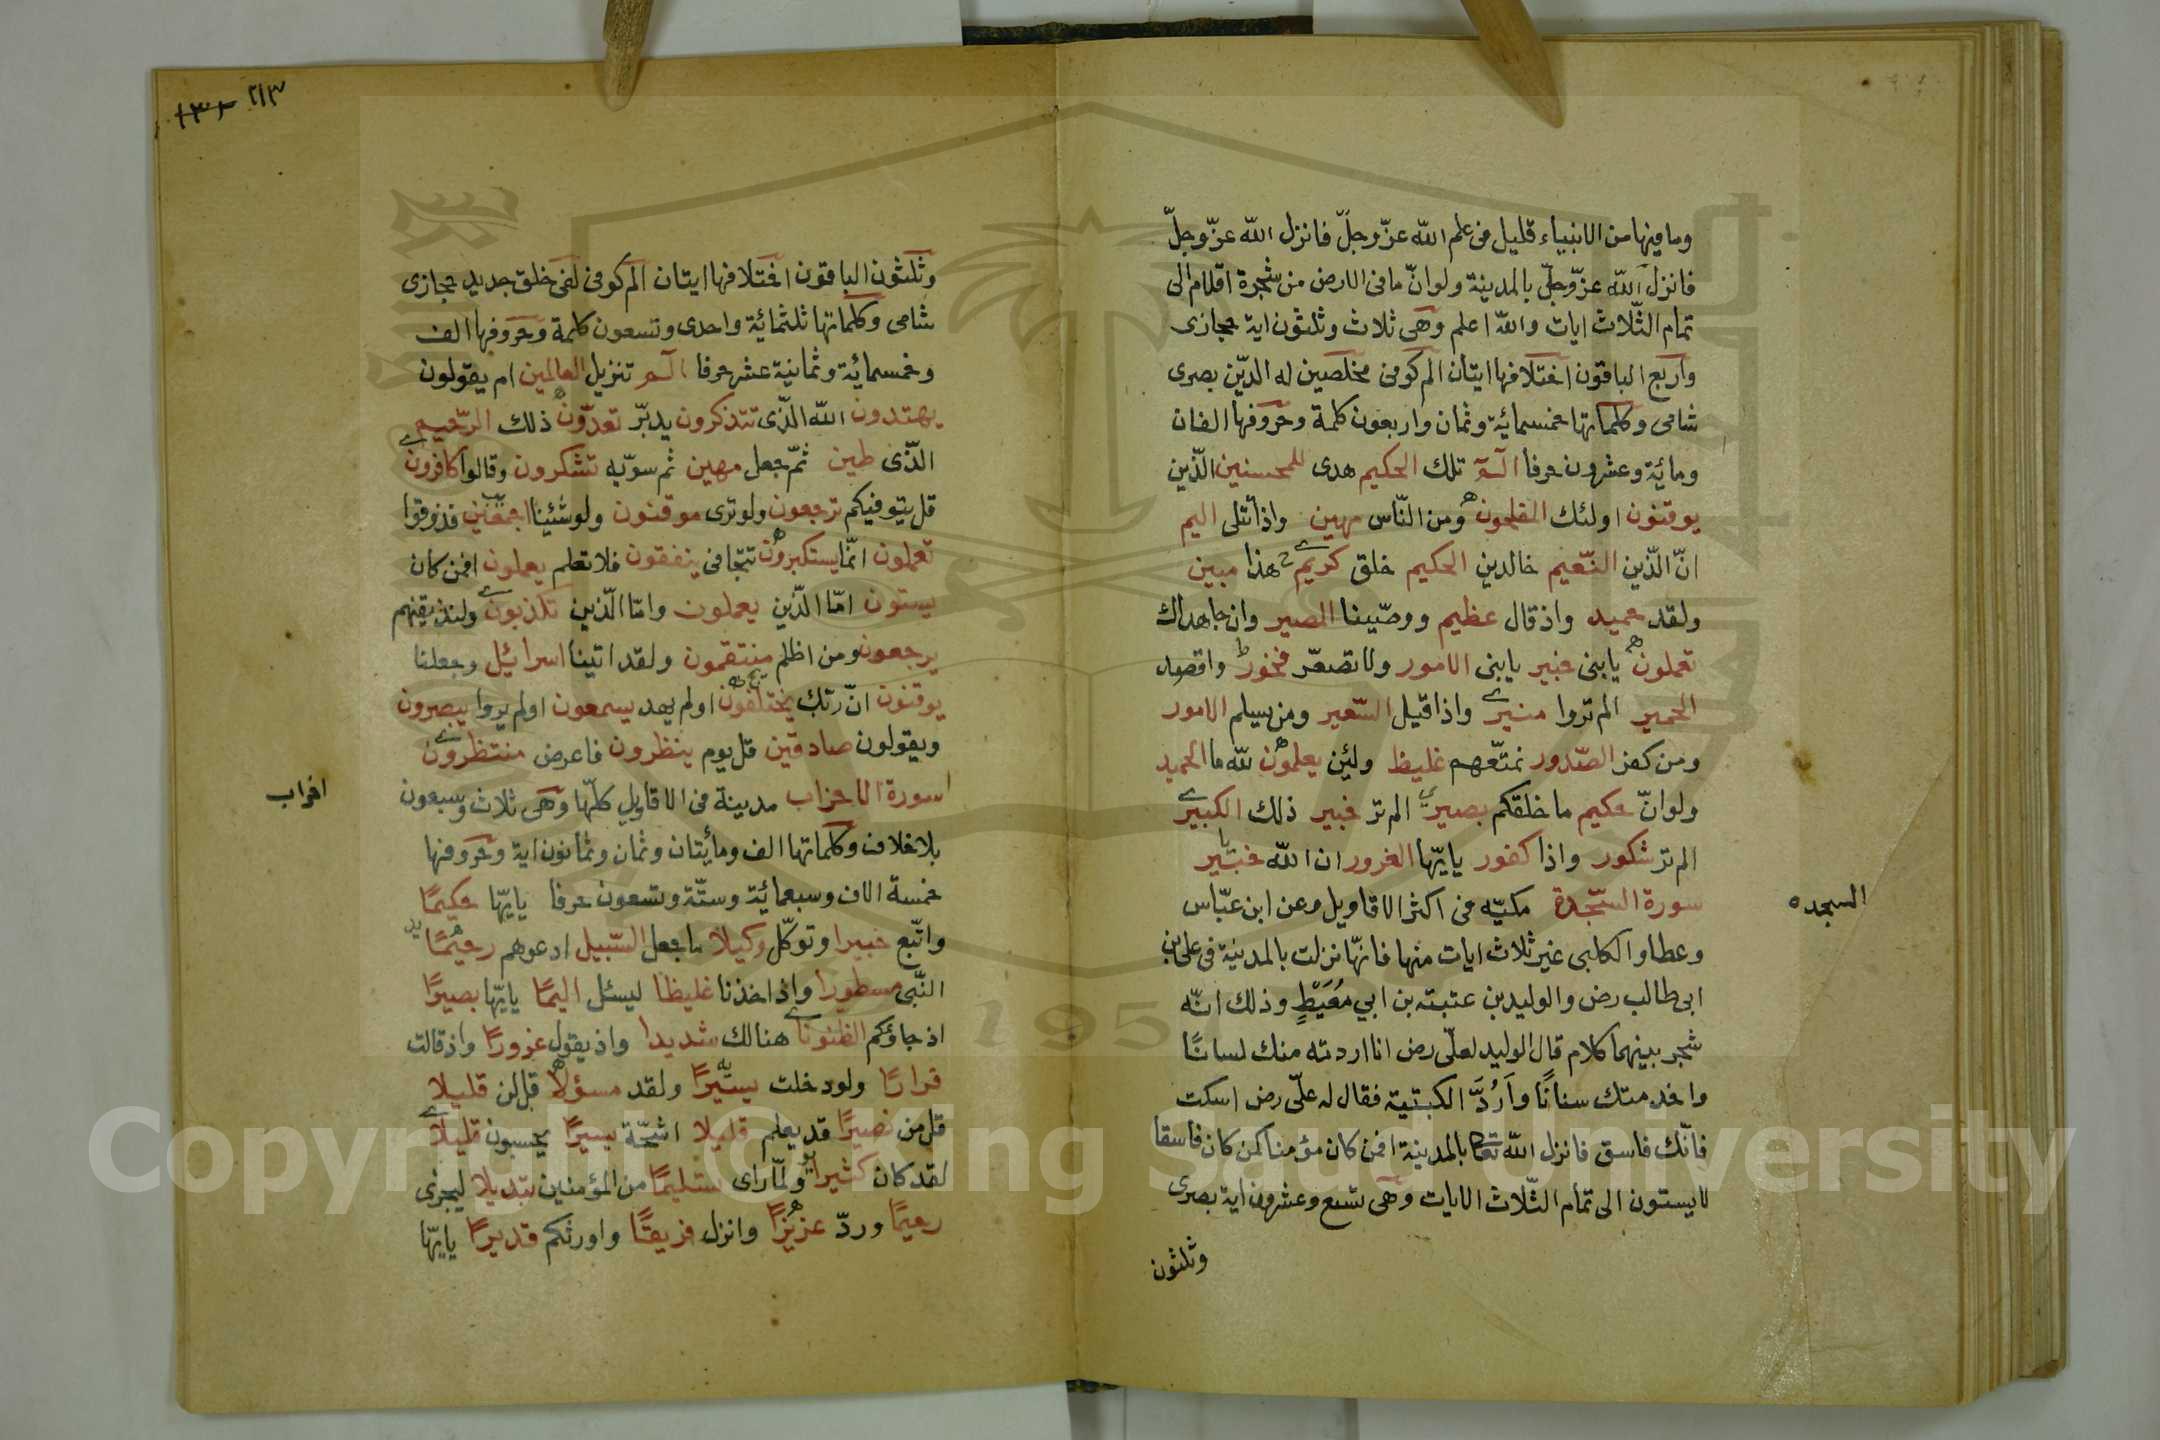 وما فيها من الانبياء قليل فى علم الله عزّ وجلّ فانزل الله عزّ وجلّ
فانزل الله عزّ وجلّ بالمدينة ولو انّ ما فى الارض من شجرة اقلام الى
تمام الثّلاث ايات والله اعلم وهى ثلاث وثلثون اية حجازى
واربع الباقون اختلافها ايتان الم كوفى مخلصين له الدّين بصرى
شامى وكلماتها خمسمائة وثمان واربعون كلمة وحروفها الفان
ومائة وعشرون حرفا الم تلك الحكيم هدى للمحسنين الّذين
يوقنون اولئك المفلحون ومن النّاس مهين واذا تتلى اليم
انّ الّذين النّعيم خالدين الحكيم خلق كريم هذا مبين
ولقد حميد واذ قال عظيم ووصّينا المصير وان جاهداك
تعملون يا بنى خبير يا بنى الامور ولا تصعّر فخور واقصد
الحمير الم تروا منير واذا قيل السّعير ومن يسلم الامور
ومن كفر الصّدور نمتّعهم غليظ ولئن يعلمون لله ما الحميد
ولو انّ حكيم ما خلقكم بصير الم تر خبير ذلك الكبير
الم تر شكور واذا كفور يا يّها الغرور ان الله خبير
سورة السّجدة مكيّه فى اكثر الاقاويل وعن ابن عبّاس
السجده
وعطا والكلبى غير ثلاث ايات منها فانّها نزلت بالمدينة فى على بن
ابى طالب رض والوليد بن عتبته بن ابي مُعَيْطٍ وذلك انّه
شجر بينهما كلام قال الوليد لعلّى رض انا اردته منك لسانًا
واحد منك سنانًا واَرُدَّ الكبتية فقال له علّى رض اسكت
فانّك فاسق فانزل الله تعا بالمدينة افمن كان مؤمنا كمن كان فاسقا
لا يستون الى تمام الثّلاث الايات وهى تسع وعشرون اية بصرى
وثلثون
٢١٣
وثلثون الباقون اختلافها ايتان الم كوفى لفى خلق جديد حجازى
شامى وكلماتها ثلثمائة واحدى وتسعون كلمة وحروفها الف
وخمسمائة وثمانية عشر حرفا الم تنزيل العالمين ام يقولون
يهتدون الله الّذى تتذكرون يدبّر تعدّون ذلك الرّحيم
الّذى طين ثمّ جعل مهين ثم سوّيه تشكرون وقالوا كافرون
قل يتوفيكم ترجعون ولو ترى موقنون ولو شئينا اجمعين فذوقوا
تعملون انّما يستكبرون تتجافى ينفقون فلا تعلم يعملون افمن كان
يستون امّا الّذين يعملون وامّا الّذين تكذبون ولنذيقنهم
يرجعون ومن اظلم منتقمون ولقد اتينا اسرائيل وجعلنا
يوقنون انّ ربّك يختلفون اولم يهد يسمعون اولم يروا يبصرون
ويقولون صادقين قل يوم ينظرون فاعرض منتظرون
سورة الاحزاب مدينة فى الاقاويل كلّها وهى ثلاث وسبعون
احزاب
بلا خلاف وكلماتها الف ومائتان وثمان وثمانون اية وحروفها
خمسة الاف وسبعمائة وستّة وتسعون حرفا يا يّها حكيمًا
واتّبع خبيرا وتوكّل وكيلا ما جعل السّبيل ادعوهم رحيمًا
النّبى مسطورا واذ اخذنا غليظا ليسئل اليمًا يا يّها بصيرًا
اذ جاؤكم الظنونا هنالك شديدا واذ يقول غرورًا واذ قالت
فرارًا ولو دخلت يسيرًا ولقد مسؤلا قل لن قليلا
قل من نصيرًا قد يعلم قليلا اشحّة يسيرًا يحسبون قليلا
لقد كان كثيرا ولمّا راى تسليمًا من المؤمنين تبديلا ليجزى
رحيمًا وردّ عزيزًا وانزل فريقًا واورثكم قديرًا يا يّها
Copyright © King Saud University
1957